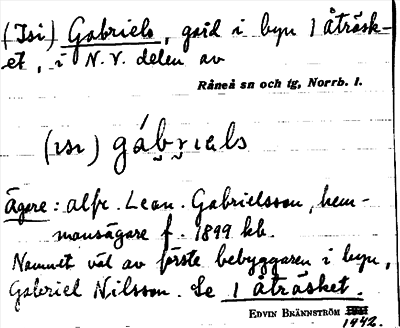 (Isi) Gabriels, gård i byn 1 åträsk-
et, i N.V. delen av
Råneå sn och tg, Norrb. l.
(ɪsɪ) gáb̯r̯ɪels
Ägare: Alfr. Lean. Gabrielsson, hem-
mansägare f. 1899 kb.
Namnet väl av förste bebyggaren i byn,
Gabriel Nilsson. Se 1 åträsket.
EDVIN BRÄNNSTRÖM
1942.